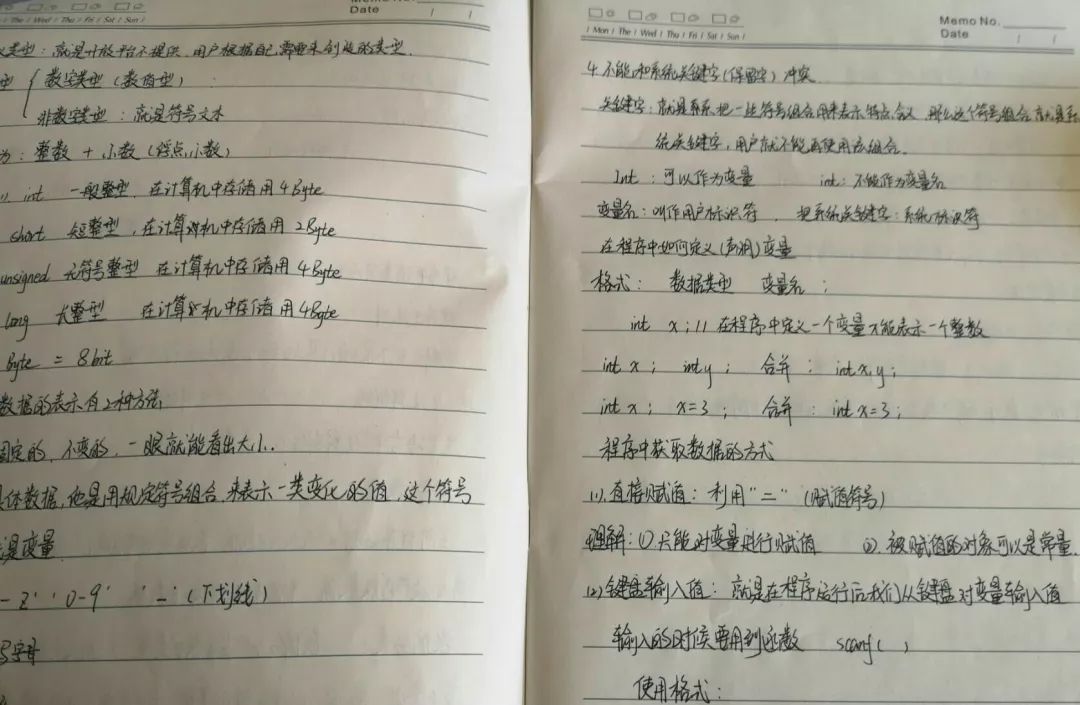 / Thu / Wed / Thu / Fri / Sat / Sun /
Memo No.
Date / /
类型：就是计算平台不提供，用户根据自己需要来创造的类型.
型 { 数字类型（数值型）
非数字类型：就是符号文本
为：整数 + 小数（浮点小数）
int 一般整型，在计算机中存储用4Byte
short 短整型，在计算机中存储用2Byte
unsigned 无符号整型 在计算机中存储用4Byte
long 长整型 在计算机中存储用4Byte
Byte = 8bit
数据的表示有2种方法
固定的，不变的，一眼就能看出大小.
体数据，他是用规定符号组合，来表示一类变化的值，这个符号
是变量
- z' '0-9' '_'（下划线）
字母
Memo No.
Date / /
/ Mon / The / Wed / Thu / Fri / Sat / Sun /
4 不能和系统关键字（保留字）冲突
关键字：就是系系把一些符号组合用来表示特点含义，那么这个符号组合就是系
统关键字，用户就不能再使用该组合.
Int：可以作为变量 int：不能作为变量名
变量名：叫作用户标识符， 把系统关键字：系统标识符
在程序中如何定义（声明）变量
格式： 数据类型 变量名；
int x；// 在程序中定义一个变量x能表示一个整数
int x； int y； 合并： int x,y；
int x； x=3； 合并： int x=3；
程序中获取数据的方式
(1).直接赋值：利用"="（赋值符号）
理解：①.只能对变量进行赋值 ②.被赋值的对象可以是常量.
(2)键盘输入值：就是在程序运行后我们从键盘对变量输入值
输入的时候要用到函数 scanf( )
使用格式：